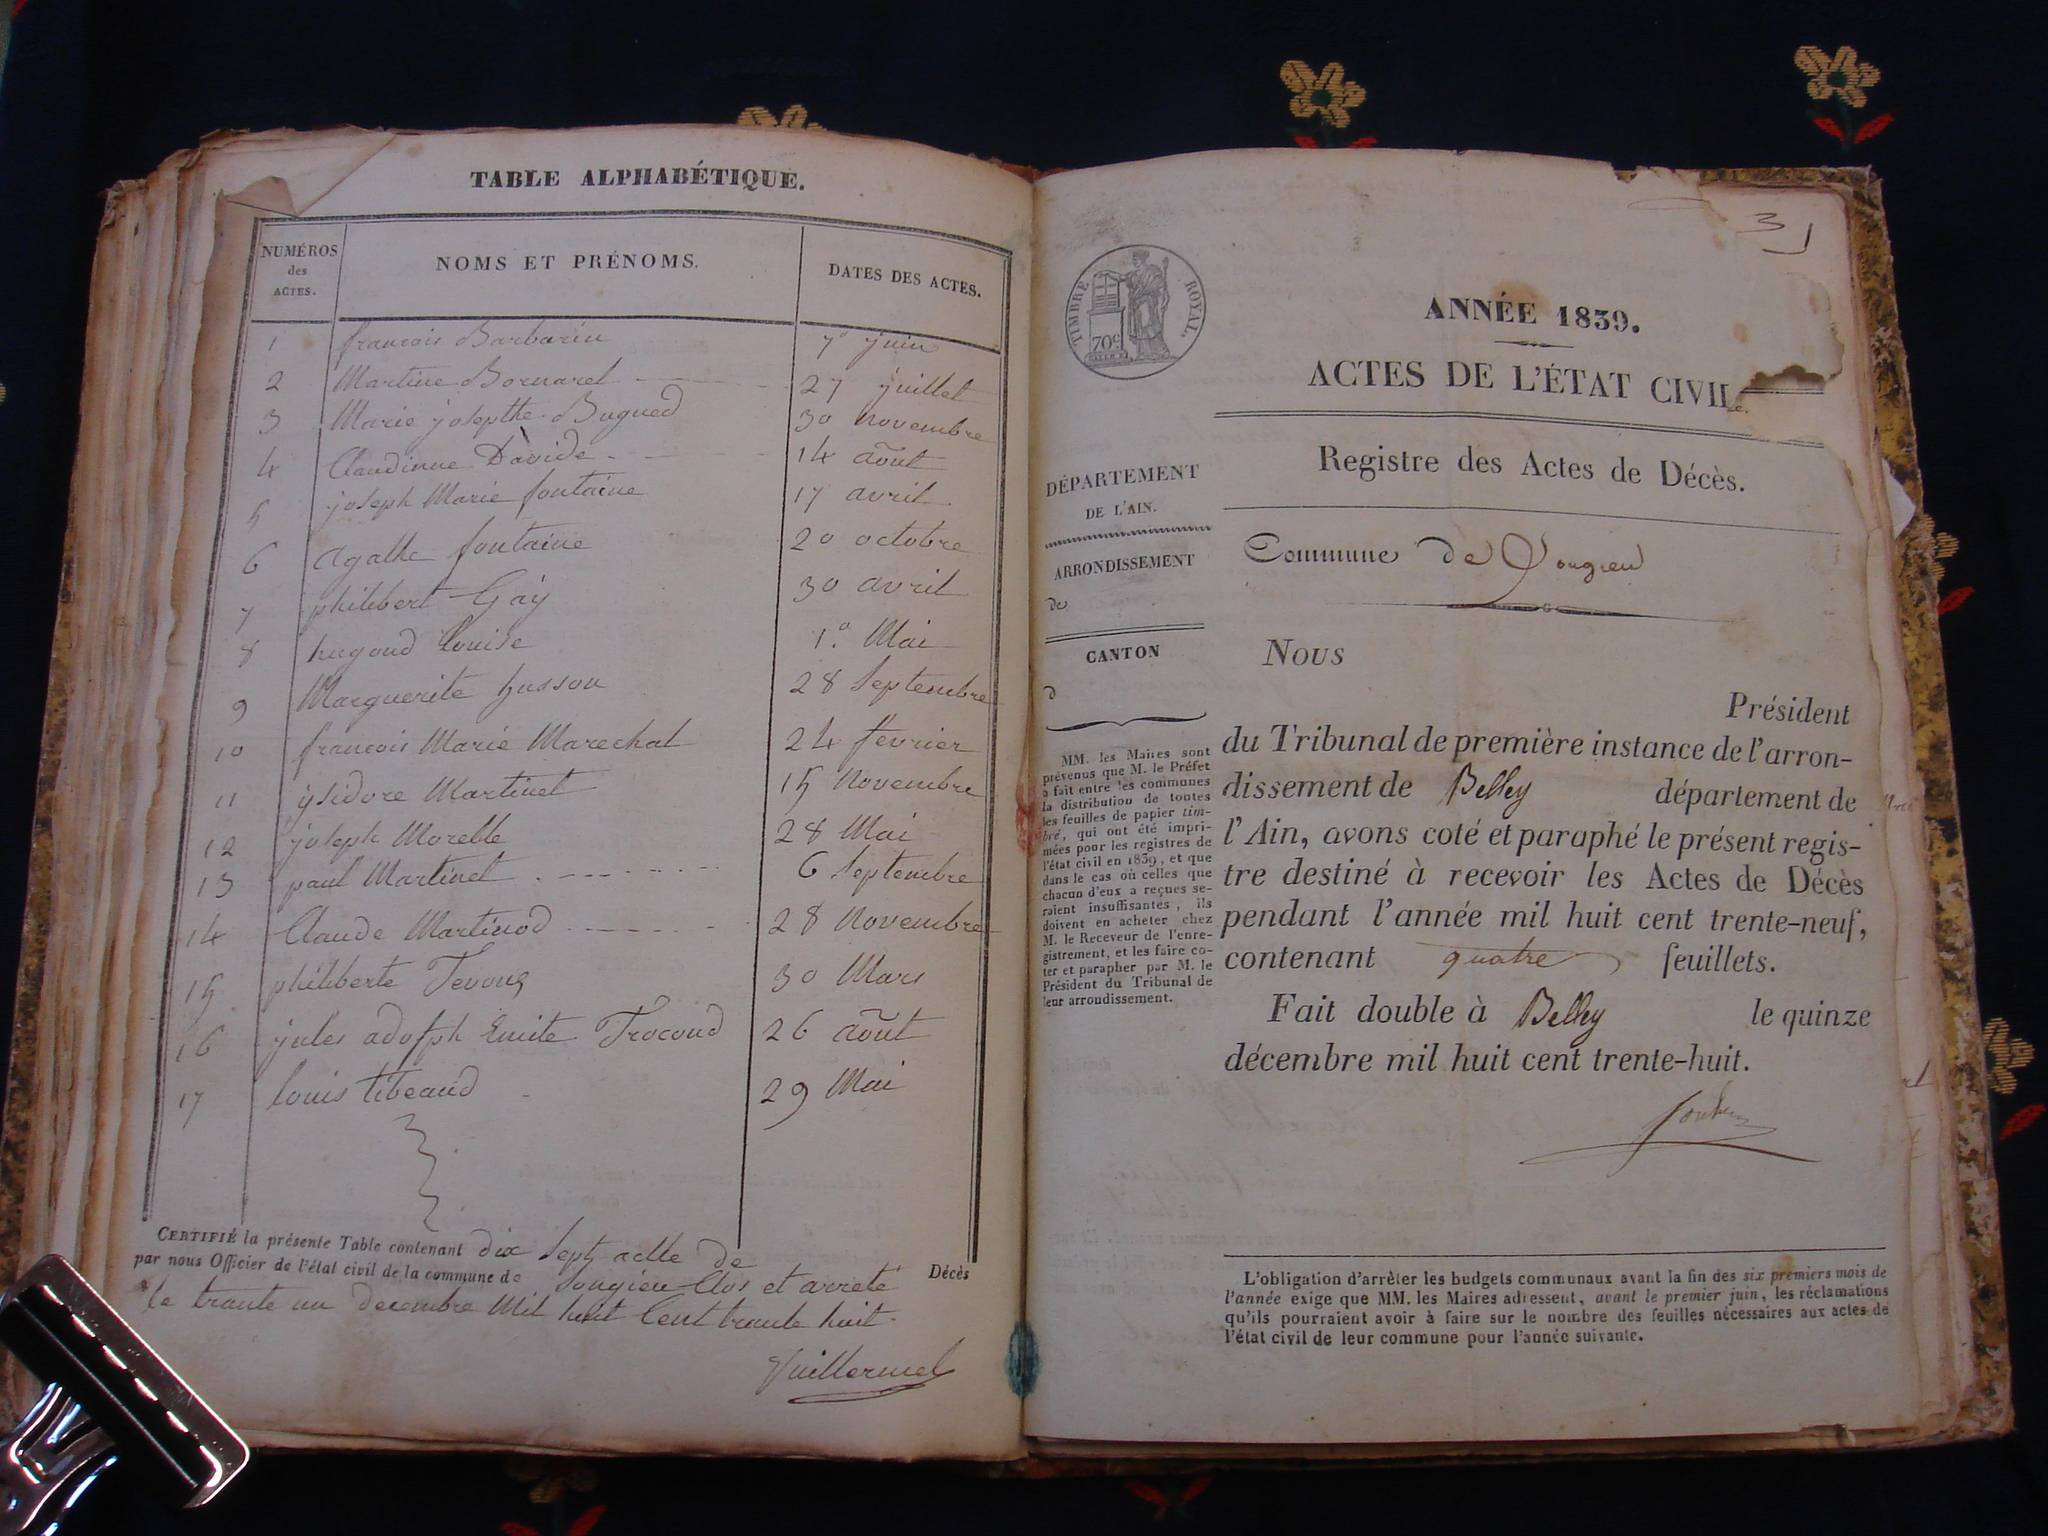 TABLE ALPHABÉTIQUE.
NUMÉROS des ACTES. NOMS ET PRÉNOMS. DATES DES ACTES.
1 francois Barbarin 7 juin
2 Martine Bornarel 27 juillet
3 Marie josepthe Bugued 30 novembre
4 Claudinne Davide 14 août
5 joseph Marie fontaine 17 avril
6 agathe fontaine 20 octobre
7 philibert Gay 30 avril
8 hugoud louise 1.º Mai
9 Marguerite husson 28 Septembre
10 francois Marie Marechal 24 fevrier
11 ysidore Martinet 15 novembre
12 joseph Morelle 28 Mai
13 paul Martinet 6 Septembre
14 Claude Martinod 28 novembre
15 philiberte 30 Mars
16 jules adolph Emile Trocoud 26 août
17 louis tibeaud 29 Mai
CERTIFIÉ la présente Table contenant dix Sept acte de Décès
par nous Officier de l'état civil de la commune de Songieu Clos et arrete
le trante un decembre Mil huit Cent trante huit
Guillermet
31
TIMBRE ROYAL.
70c
ANNÉE 1839.
ACTES DE L'ÉTAT CIVIL
Registre des Actes de Décès.
Commune de Songieu
DÉPARTEMENT
DE L'AIN.
ARRONDISSEMENT
de
CANTON
d
MM. les Maires sont
prévenus que M. le Préfet
a fait entre les communes
la distribution de toutes
les feuilles de papier tim-
bré, qui ont été impri-
mées pour les registres de
l'état civil en 1839, et que
dans le cas où celles que
chacun d'eux a reçues se-
raient insuffisantes, ils
doivent en acheter chez
M. le Receveur de l'enre-
gistrement, et les faire co-
ter et parapher par M. le
Président du Tribunal de
leur arrondissement.
Nous
Président
du Tribunal de première instance de l'arron-
dissement de Belley département de
l'Ain, avons coté et paraphé le présent regis-
tre destiné à recevoir les Actes de Décès
pendant l'année mil huit cent trente-neuf,
contenant quatre feuillets.
Fait double à Belley le quinze
décembre mil huit cent trente-huit.
L'obligation d'arrêter les budgets communaux avant la fin des six premiers mois de
l'année exige que MM. les Maires adressent, avant le premier juin, les réclamations
qu'ils pourraient avoir à faire sur le nombre des feuilles nécessaires aux actes de
l'état civil de leur commune pour l'année suivante.